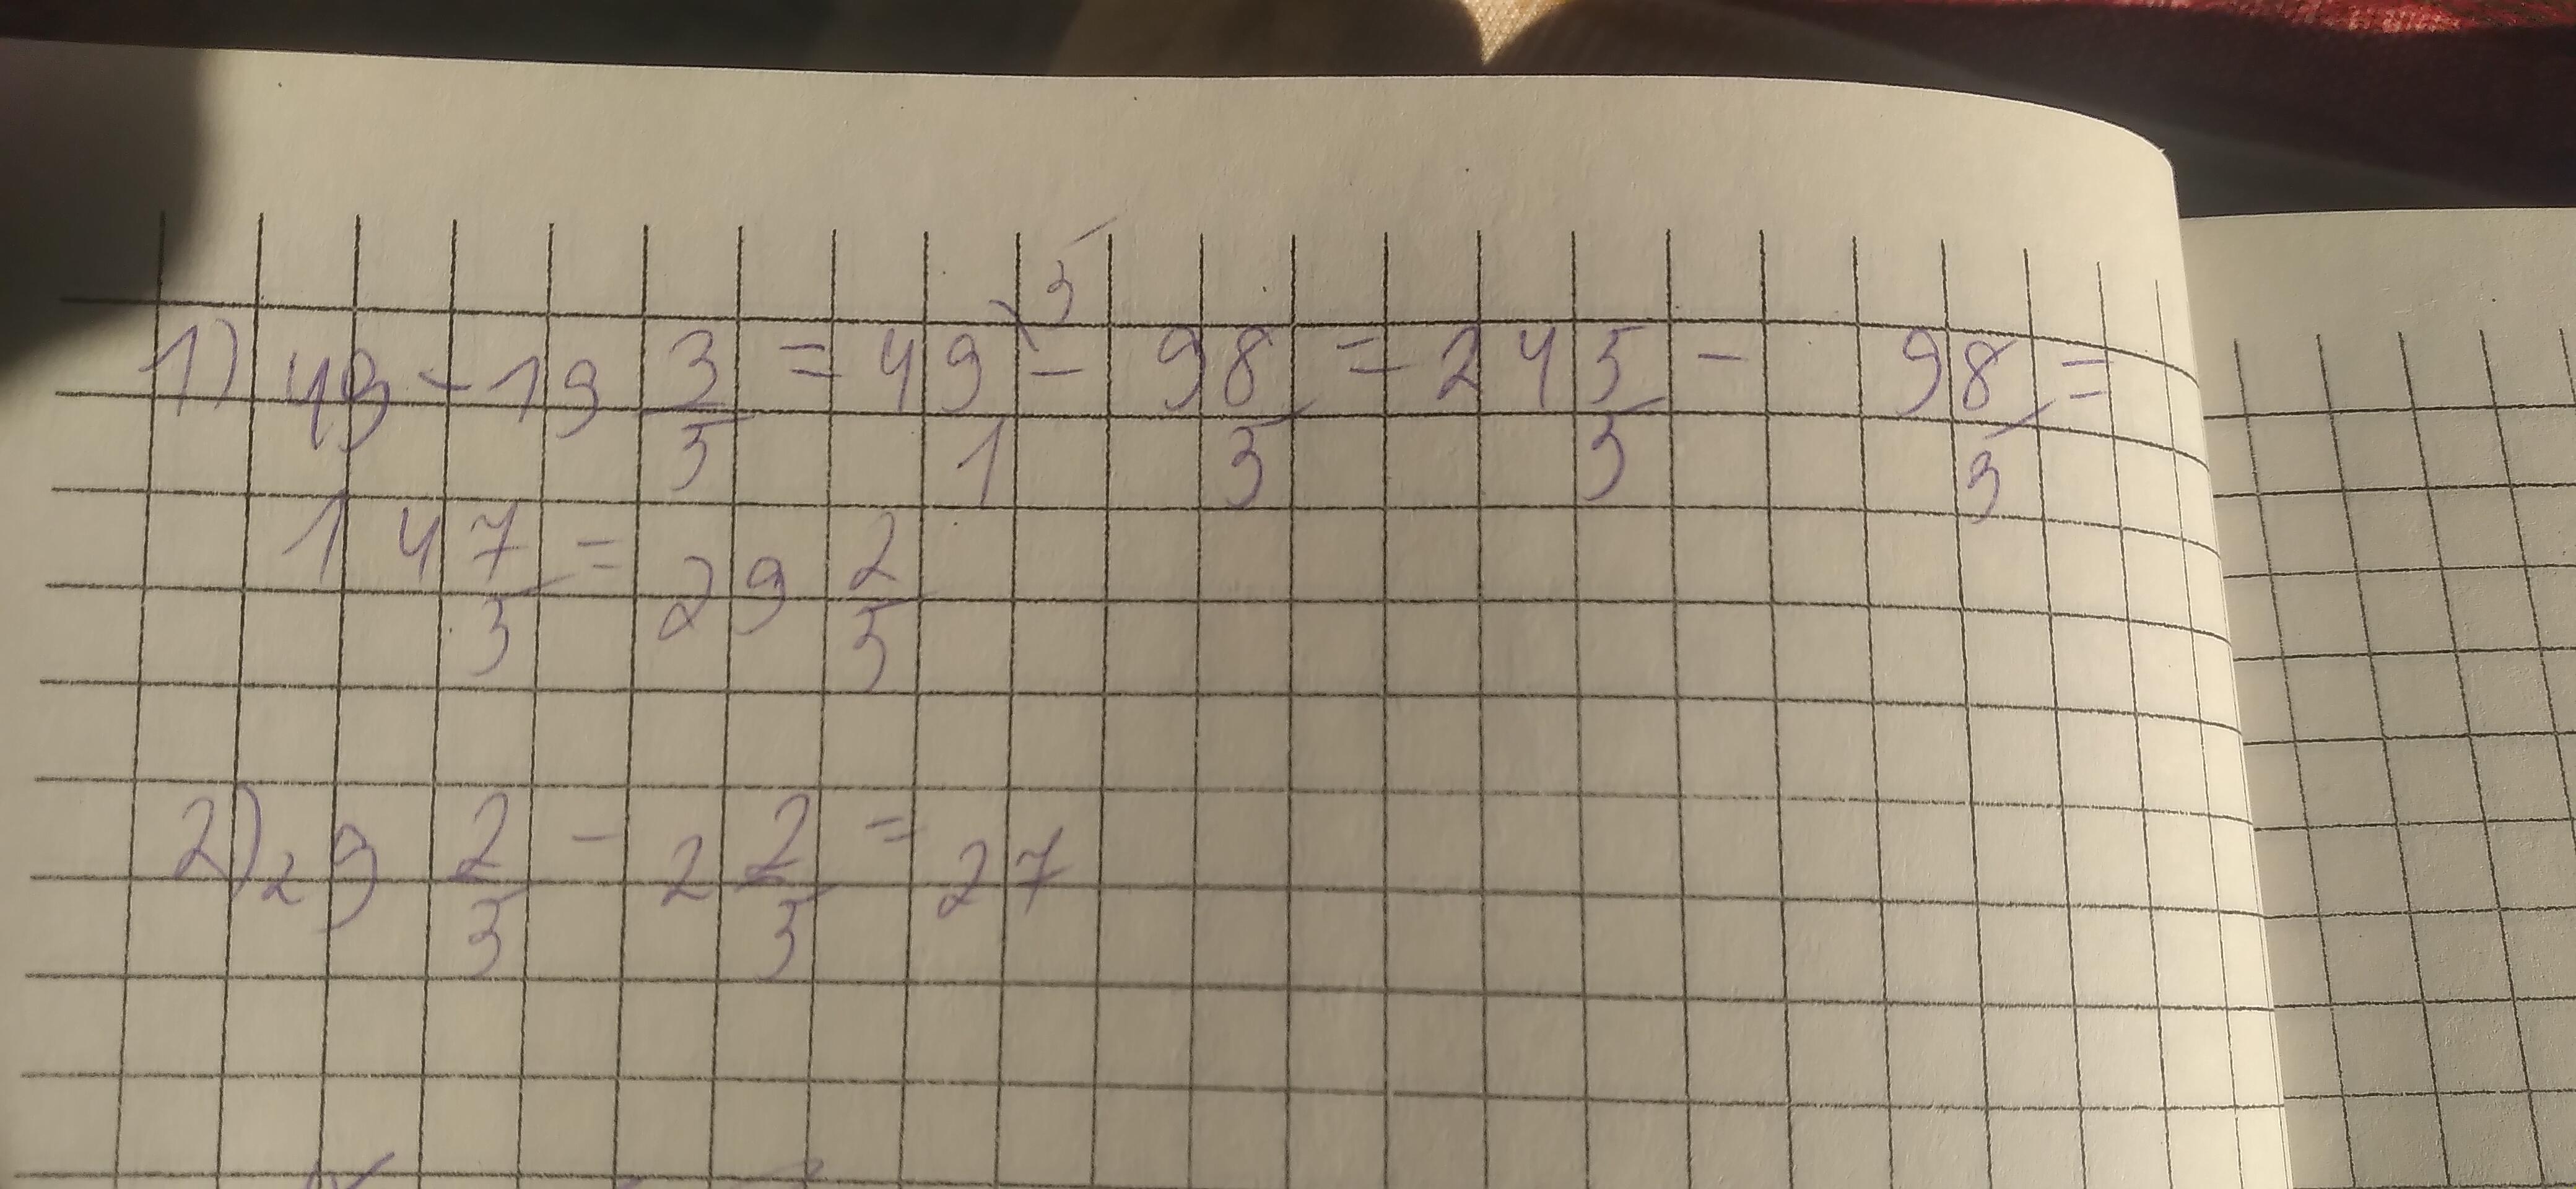 1) 49 - 19 3/5 = 49/1 ^5 - 98/5 = 245/5 - 98/5 =
147/5 = 29 2/5
2) 29 2/5 - 2 2/5 = 27